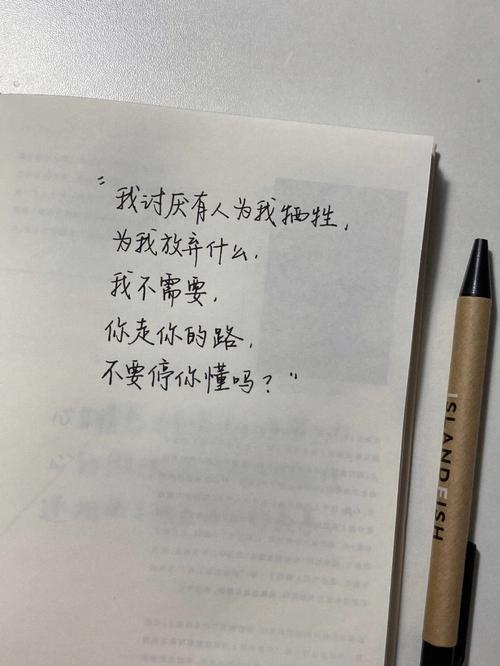 “我讨厌有人为我牺牲，
为我放弃什么，
我不需要，
你走你的路，
不要停你懂吗？”
ISLANDFISH